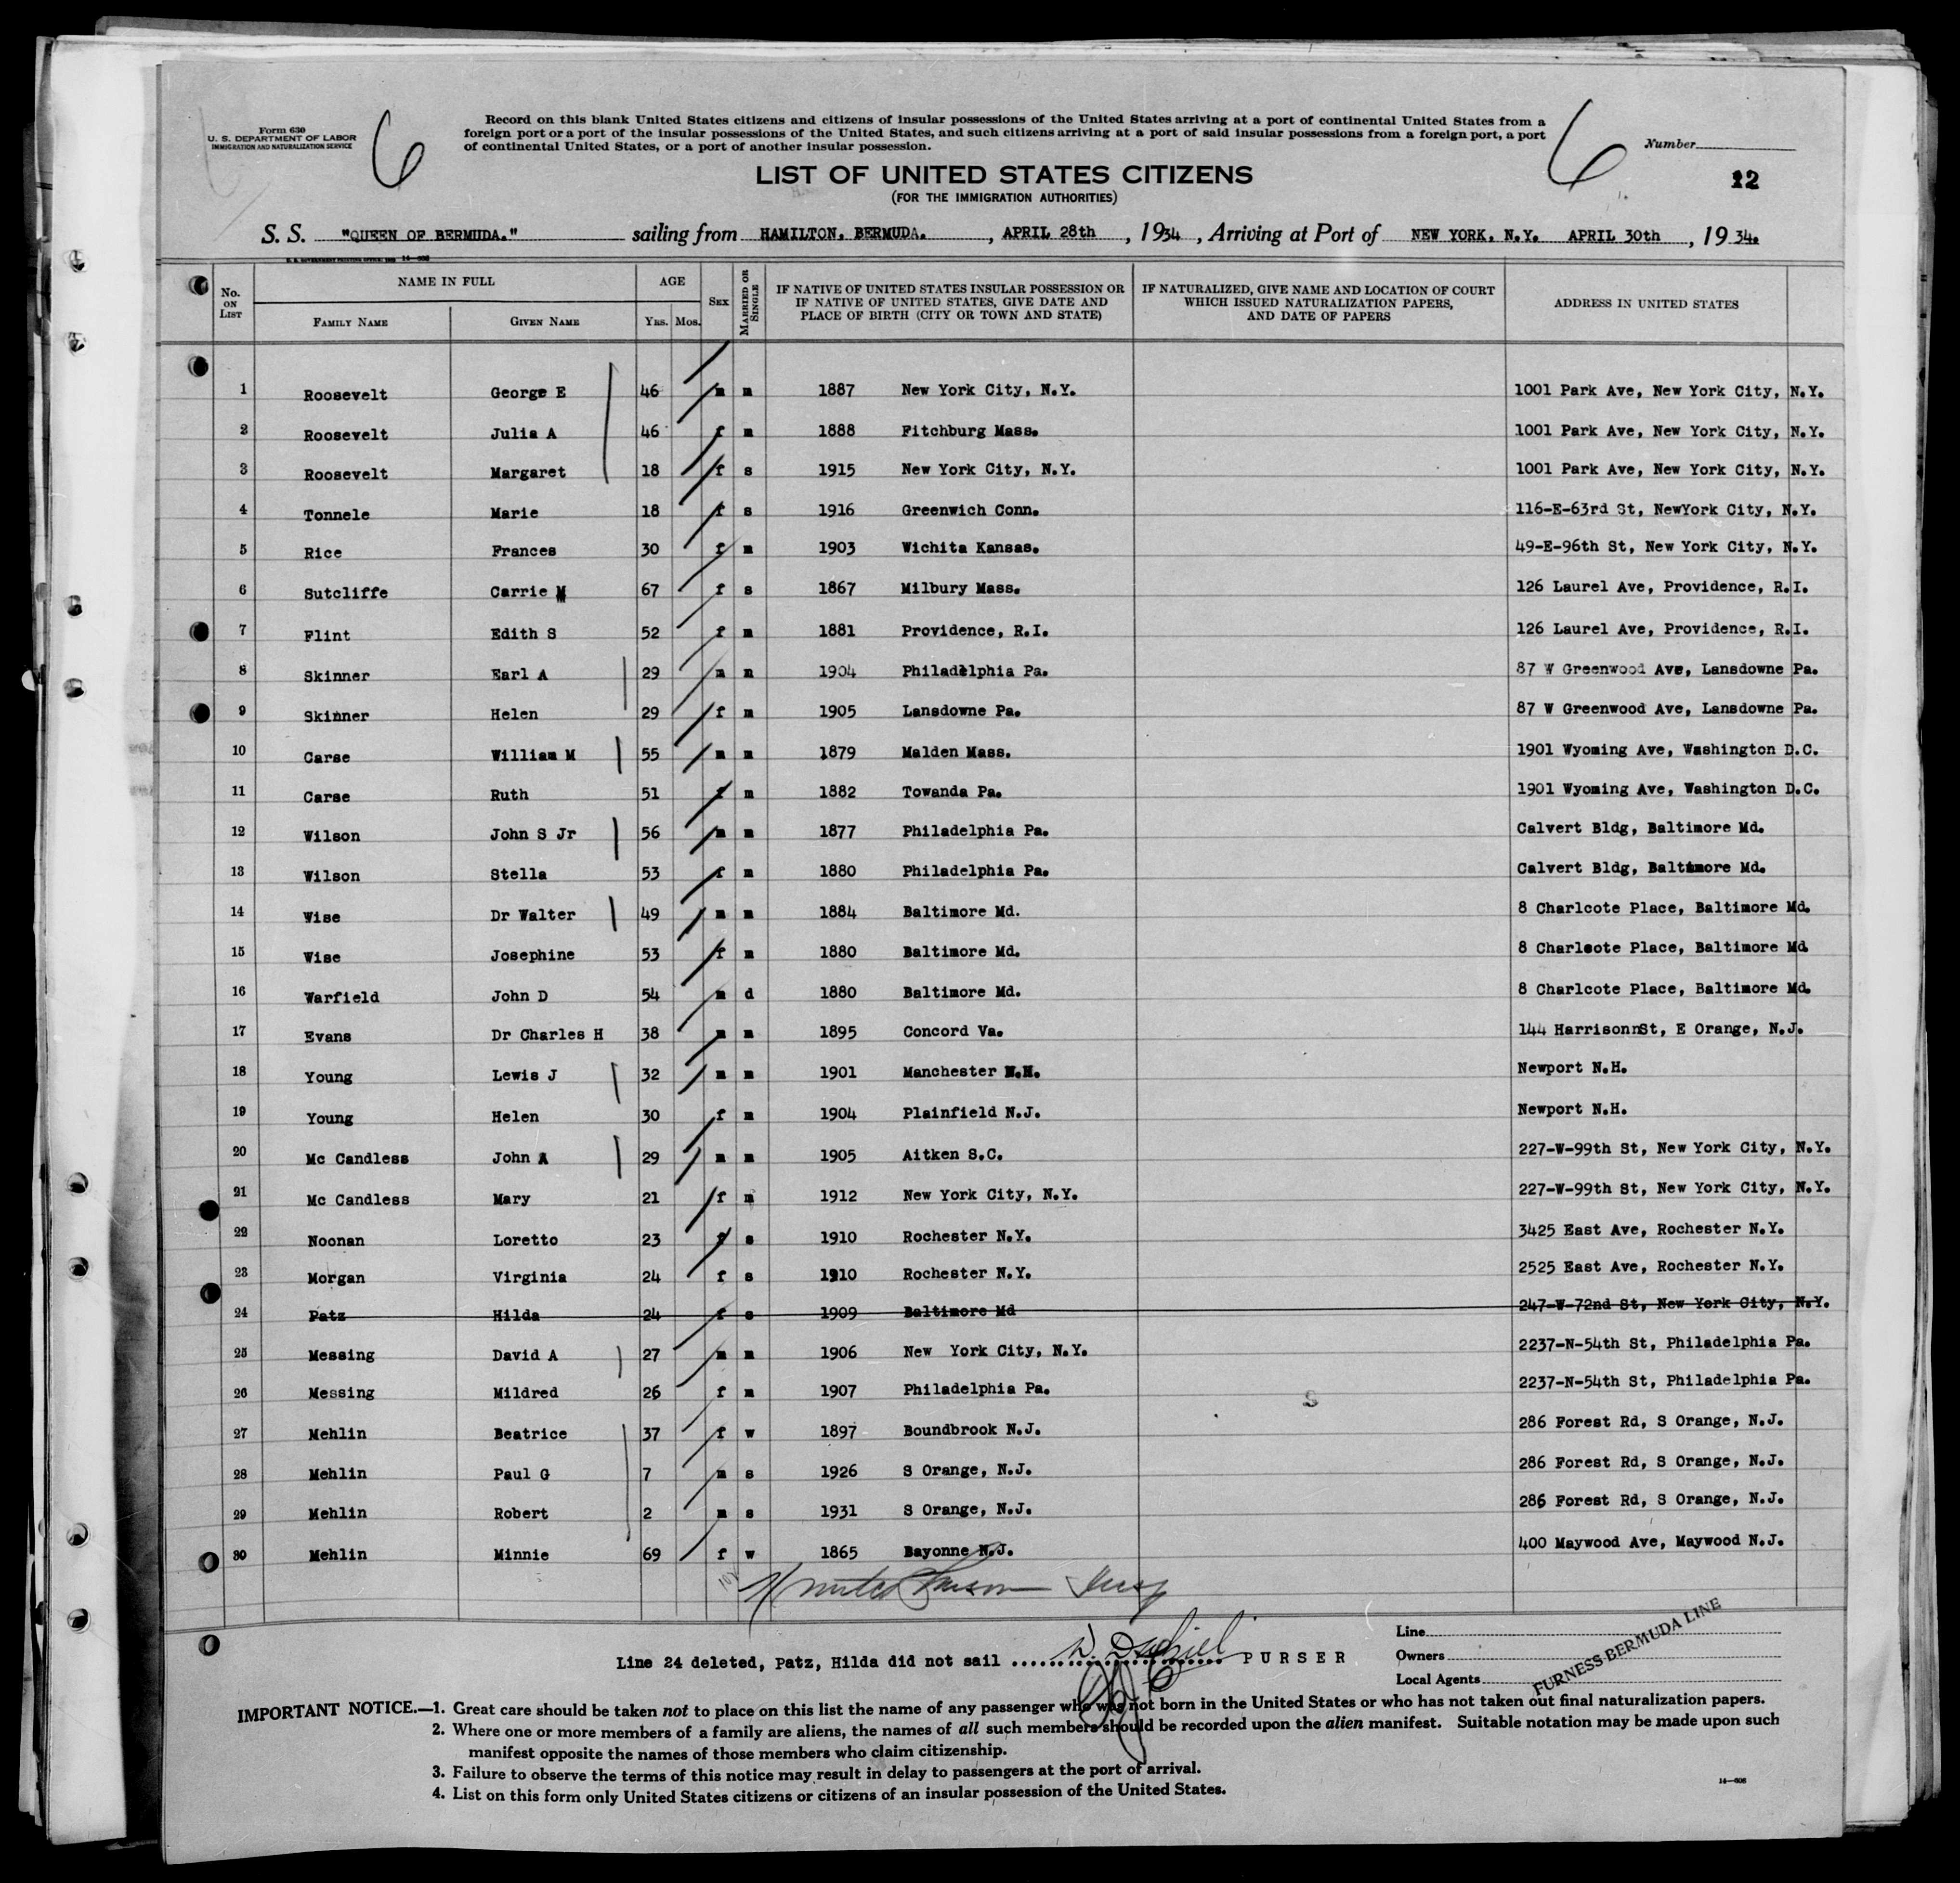 Form 630
U. S. DEPARTMENT OF LABOR
IMMIGRATION AND NATURALIZATION SERVICE
6
Record on this blank United States citizens and citizens of insular possessions of the United States arriving at a port of continental United States from a
foreign port or a port of the insular possessions of the United States, and such citizens arriving at a port of said insular possessions from a foreign port, a port
of continental United States, or a port of another insular possession.
6
Number
12
LIST OF UNITED STATES CITIZENS
(FOR THE IMMIGRATION AUTHORITIES)
S. S. "QUEEN OF BERMUDA." sailing from HAMILTON, BERMUDA. , APRIL 28th , 1934 , Arriving at Port of NEW YORK, N.Y. APRIL 30th , 19 34.
U. S. GOVERNMENT PRINTING OFFICE: 14—606
No. ON LIST NAME IN FULL AGE SEX MARRIED OR SINGLE IF NATIVE OF UNITED STATES INSULAR POSSESSION OR IF NATIVE OF UNITED STATES, GIVE DATE AND PLACE OF BIRTH (CITY OR TOWN AND STATE) IF NATURALIZED, GIVE NAME AND LOCATION OF COURT WHICH ISSUED NATURALIZATION PAPERS, AND DATE OF PAPERS ADDRESS IN UNITED STATES
FAMILY NAME GIVEN NAME YRS. MOS.
1 Roosevelt George E 46 m m 1887 New York City, N.Y. 1001 Park Ave, New York City, N.Y.
2 Roosevelt Julia A 46 f m 1888 Fitchburg Mass. 1001 Park Ave, New York City, N.Y.
3 Roosevelt Margaret 18 f s 1915 New York City, N.Y. 1001 Park Ave, New York City, N.Y.
4 Tonnele Marie 18 f s 1916 Greenwich Conn. 116-E-63rd St, NewYork City, N.Y.
5 Rice Frances 30 f m 1903 Wichita Kansas. 49-E-96th St, New York City, N.Y.
6 Sutcliffe Carrie M 67 f s 1867 Milbury Mass. 126 Laurel Ave, Providence, R.I.
7 Flint Edith S 52 f m 1881 Providence, R.I. 126 Laurel Ave, Providence, R.I.
8 Skinner Earl A 29 m m 1904 Philadelphia Pa. 87 W Greenwood Ave, Lansdowne Pa.
9 Skinner Helen 29 f m 1905 Lansdowne Pa. 87 W Greenwood Ave, Lansdowne Pa.
10 Carse William M 55 m m 1879 Malden Mass. 1901 Wyoming Ave, Washington D.C.
11 Carse Ruth 51 f m 1882 Towanda Pa. 1901 Wyoming Ave, Washington D.C.
12 Wilson John S Jr 56 m m 1877 Philadelphia Pa. Calvert Bldg, Baltimore Md.
13 Wilson Stella 53 f m 1880 Philadelphia Pa. Calvert Bldg, Baltimore Md.
14 Wise Dr Walter 49 m m 1884 Baltimore Md. 8 Charlcote Place, Baltimore Md.
15 Wise Josephine 53 f m 1880 Baltimore Md. 8 Charlcote Place, Baltimore Md
16 Warfield John D 54 m d 1880 Baltimore Md. 8 Charlcote Place, Baltimore Md.
17 Evans Dr Charles H 38 m m 1895 Concord Va. 144 HarrisonnSt, E Orange, N.J.
18 Young Lewis J 32 m m 1901 Manchester N.H. Newport N.H.
19 Young Helen 30 f m 1904 Plainfield N.J. Newport N.H.
20 Mc Candless John A 29 m m 1905 Aitken S.C. 227-W-99th St, New York City, N.Y.
21 Mc Candless Mary 21 f m 1912 New York City, N.Y. 227-W-99th St, New York City, N.Y.
22 Noonan Loretto 23 f s 1910 Rochester N.Y. 3425 East Ave, Rochester N.Y.
23 Morgan Virginia 24 f s 1910 Rochester N.Y. 2525 East Ave, Rochester N.Y.
24 Patz Hilda 24 f s 1909 Baltimore Md 247-W-72nd St, New York City, N.Y.
25 Messing David A 27 m m 1906 New York City, N.Y. 2237-N-54th St, Philadelphia Pa.
26 Messing Mildred 26 f m 1907 Philadelphia Pa. 2237-N-54th St, Philadelphia Pa.
27 Mehlin Beatrice 37 f w 1897 Boundbrook N.J. 286 Forest Rd, S Orange, N.J.
28 Mehlin Paul G 7 m s 1926 S Orange, N.J. 286 Forest Rd, S Orange, N.J.
29 Mehlin Robert 2 m s 1931 S Orange, N.J. 286 Forest Rd, S Orange, N.J.
30 Mehlin Minnie 69 f w 1865 Bayonne N.J. 400 Maywood Ave, Maywood N.J.
Line 24 deleted, Patz, Hilda did not sail PURSER
Line
Owners
Local Agents
FURNESS BERMUDA LINE
IMPORTANT NOTICE.—1. Great care should be taken not to place on this list the name of any passenger who was not born in the United States or who has not taken out final naturalization papers.
2. Where one or more members of a family are aliens, the names of all such members should be recorded upon the alien manifest. Suitable notation may be made upon such
manifest opposite the names of those members who claim citizenship.
3. Failure to observe the terms of this notice may result in delay to passengers at the port of arrival.
4. List on this form only United States citizens or citizens of an insular possession of the United States.
14—606